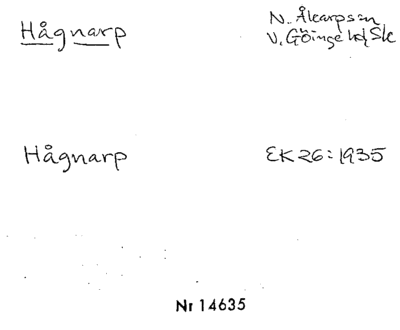 Hågnarp N. Åkarps sn
V. Göinge hd, Sk
Hågnarp EK 26: 1935
Nr 14635